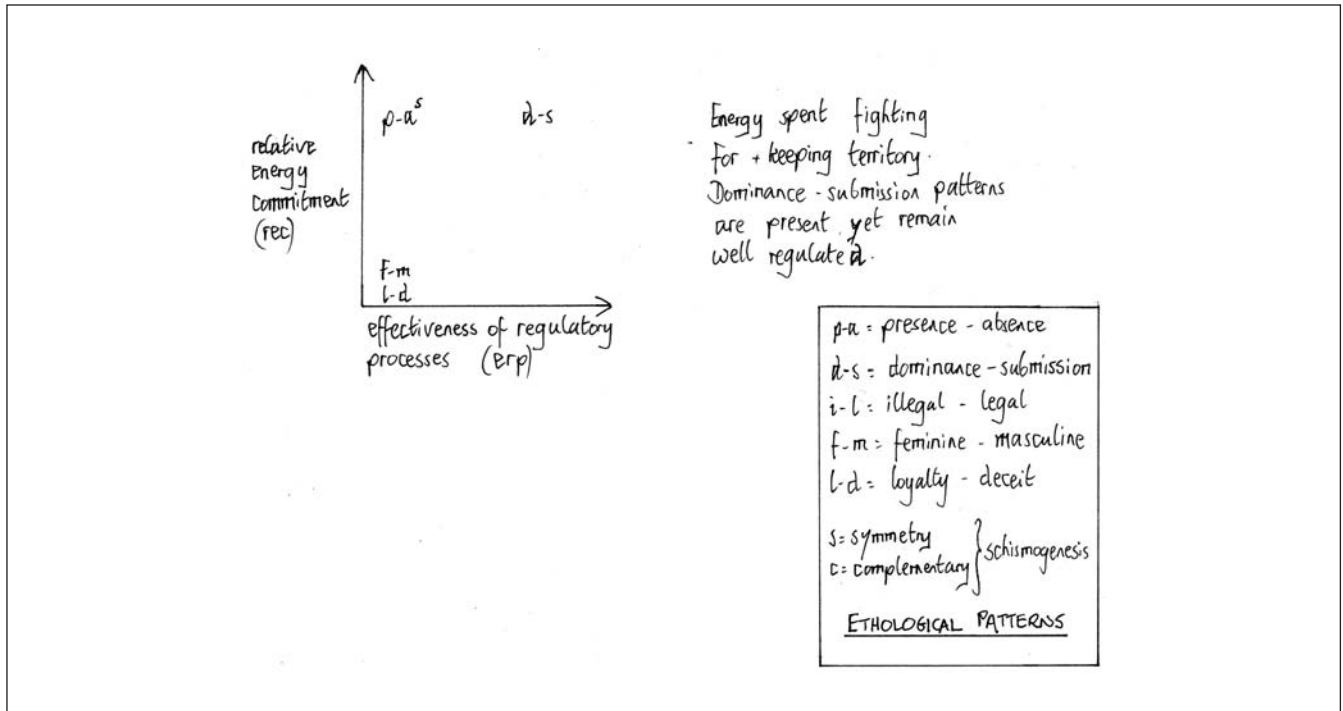 p-a^s
d-s
relative
energy
commitment
(rec)
f-m
l-d
effectiveness of regulatory
processes (erp)
Energy spent fighting
for + keeping territory.
Dominance - submission patterns
are present yet remain
well regulated.
p-a = presence - absence
d-s = dominance - submission
i-l = illegal - legal
f-m = feminine - masculine
l-d = loyalty - deceit
s = symmetry
c = complementary } schismogenesis
ETHOLOGICAL PATTERNS